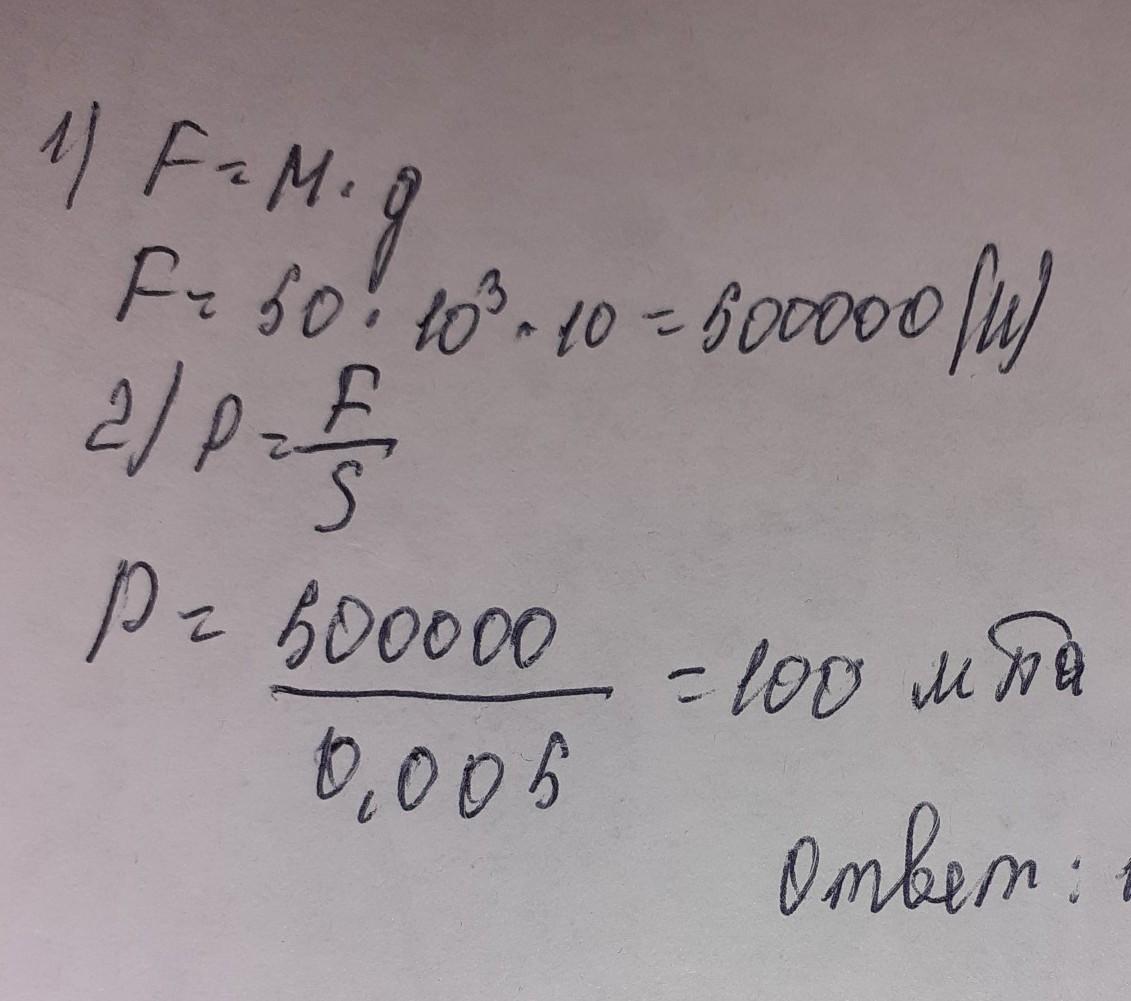 1) F = M · g
F = 50 · 10³ · 10 = 500000 (Н)
2) P = F/S
P = 500000/0,005 = 100 мПа
Ответ: 1